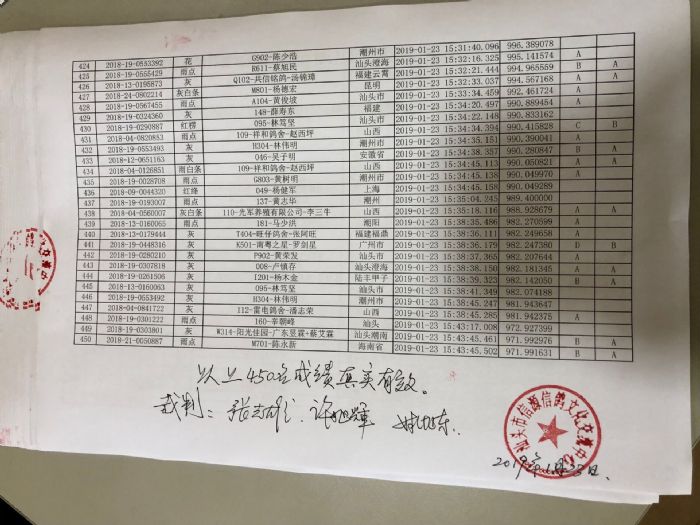 424 2018-19-0553392 花 G902-陈少浩 潮州市 2019-01-23 15:31:40.096 996.389078
425 2018-19-0555429 雨点 R611-蔡旭民 汕头澄海 2019-01-23 15:32:16.325 995.141574 A
426 2018-13-0195873 灰 Q102-共信铭鸽-汤锦璋 福建云霄 2019-01-23 15:32:21.444 994.965559 B A
427 2018-24-0802214 灰白条 M801-杨德宏 昆明 2019-01-23 15:32:33.037 994.567168 A
428 2018-19-0567455 雨点 A104-黄俊坡 汕头市 2019-01-23 15:33:34.459 992.461724 A
429 2018-19-0324360 灰 148-薛寿东 福建 2019-01-23 15:34:20.497 990.889454 A
430 2018-19-0290887 红楞 095-林笃坚 汕头市 2019-01-23 15:34:22.148 990.833162
431 2018-04-0820853 雨点 109-祥和鸽舍-赵西坪 山西 2019-01-23 15:34:34.394 990.415828 C B
432 2018-19-0553493 灰 H304-林伟明 潮州市 2019-01-23 15:34:35.151 990.390041 A
433 2018-12-0651163 灰 046-吴子明 安徽省 2019-01-23 15:34:38.357 990.280847 B A
434 2018-04-0126851 雨白条 109-祥和鸽舍-赵西坪 山西 2019-01-23 15:34:45.113 990.050821 A A
435 2018-19-0028708 雨点 G803-黄树明 潮州市 2019-01-23 15:34:45.138 990.049970
436 2018-09-0044320 红绛 049-杨健军 上海 2019-01-23 15:34:45.158 990.049289
437 2018-19-0193007 雨点 137-黄志华 潮州 2019-01-23 15:35:04.245 989.400000
438 2018-04-0560007 灰白条 110-光军养殖有限公司-李三牛 山西 2019-01-23 15:35:18.116 988.928679 A A
439 2018-13-0160065 雨点 181-马少洪 潮阳 2019-01-23 15:38:35.486 982.270599 A
440 2018-13-0179444 灰 T404-旺仔鸽舍-张阿旺 福建福鼎 2019-01-23 15:38:36.111 982.249658 A
441 2018-19-0448316 灰 K501-南粤之星-罗剑星 广州市 2019-01-23 15:38:36.179 982.247380 D B
442 2018-19-0280210 灰 P902-黄荣发 汕头市 2019-01-23 15:38:37.365 982.207644 A
443 2018-19-0307818 灰 008-卢镇存 汕头澄海 2019-01-23 15:38:38.150 982.181345 A A
444 2018-19-0261506 灰 I201-杨木金 陆丰甲子 2019-01-23 15:38:39.323 982.142050 B A
445 2018-13-0160063 灰 095-林笃坚 汕头市 2019-01-23 15:38:41.349 982.074188
446 2018-19-0553492 灰 H304-林伟明 潮州市 2019-01-23 15:38:45.247 981.943647
447 2018-04-0841722 灰 112-雷电鸽舍-潘志荣 山西 2019-01-23 15:38:45.285 981.942375 A
448 2018-19-0301222 雨点 160-辛朝峰 汕头 2019-01-23 15:43:17.008 972.927399
449 2018-19-0303801 灰 W314-阳光佳园-广东昱霖+蔡艾霖 汕头潮南 2019-01-23 15:43:40.461 972.156641 B A
450 2018-21-0050887 雨点 M701-陈永新 海南省 2019-01-23 15:43:45.502 971.991631 B A
以上450名成绩真实有效。
裁判：张志雄、许旭辉
汕头市信源信鸽文化交流中心
2019年1月23日.